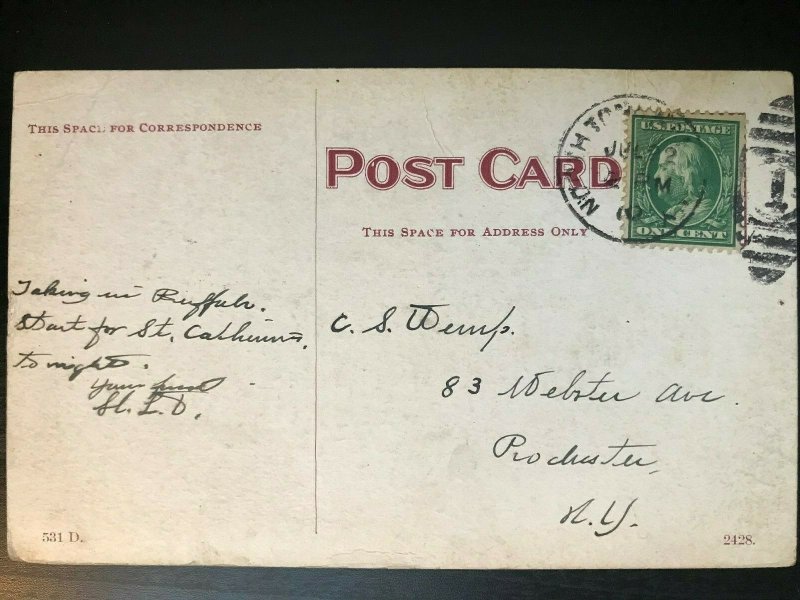 THIS SPACE FOR CORRESPONDENCE
POST CARD
THIS SPACE FOR ADDRESS ONLY
U.S. POSTAGE
ONE CENT
JUL 2
M
1
Taking in Buffalo.
Start for St. Catherines,
to night.
Your
L. D.
C. S. Wemp.
83 Webster Ave.
Rochester,
N.Y.
531 D.
2428.